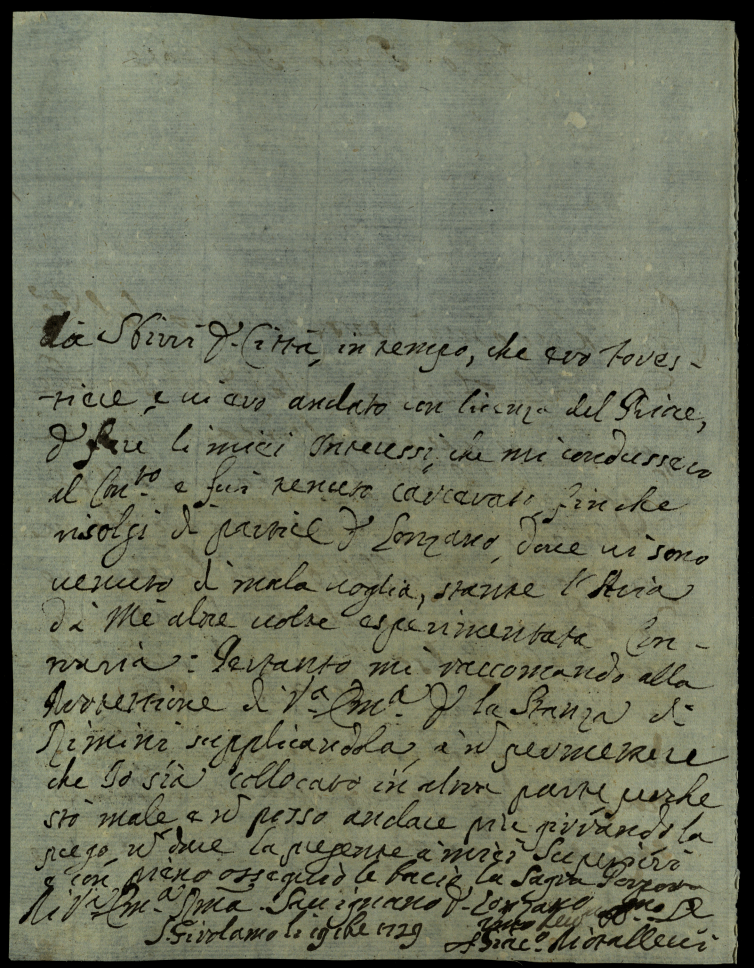 da Sbirri d. Città, in tempo, che ero fores-
-tiere, e vi ero andato con licenza del Priore,
d. fare li miei Interessi, che mi condussero
al Con.to e fui tenuto carcerato, finche
risolsi di partire d. Lonzano, dove vi sono
venuto di mala voglia, stante l'Aria
dà Mè altre volte esperimentata Con-
traria: Pertanto mi raccomando alla
Protettione di V.a Em.a d. la Stanza di
Rimini supplicandola, à n permettere
che Io sia collocato in altra parte, perche
stò male e n posso andare più girando la
prego n dare la presente à miei Superiori
e con pieno ossequio le bacio la Sagra Porpora
Di V.a Em.a Savignano d. Lonzano
S. Girolamo li 19 1729
Giac.o